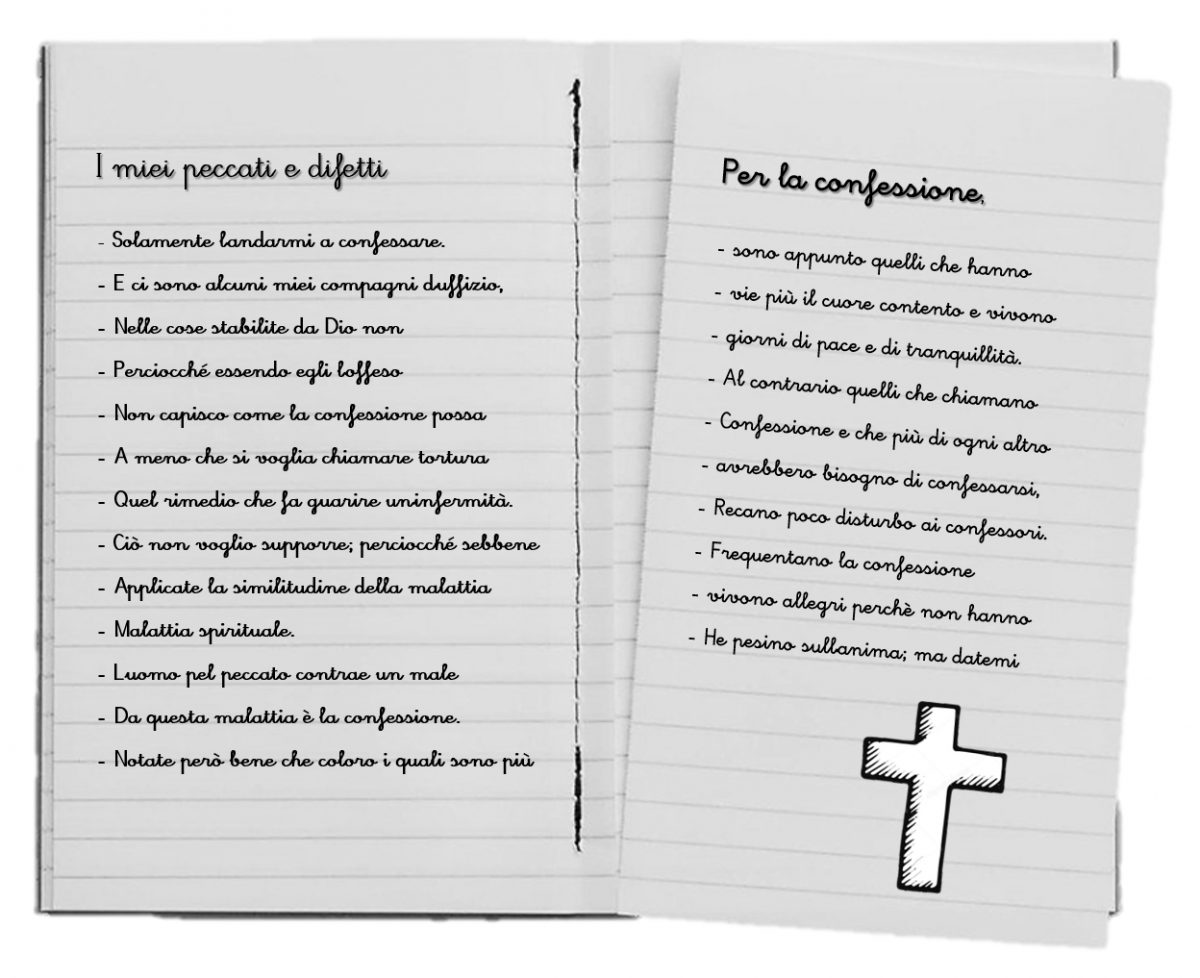 I miei peccati e difetti
- Solamente landarmi a confessare.
- E ci sono alcuni miei compagni duffizio,
- Nelle cose stabilite da Dio non
- Perciocché essendo egli loffeso
- Non capisco come la confessione possa
- A meno che si voglia chiamare tortura
- Quel rimedio che fa guarire uninfermità.
- Ciò non voglio supporre; perciocché sebbene
- Applicate la similitudine della malattia
- Malattia spirituale.
- Luomo pel peccato contrae un male
- Da questa malattia è la confessione.
- Notate però bene che coloro i quali sono più
Per la confessione,
- sono appunto quelli che hanno
- vie più il cuore contento e vivono
- giorni di pace e di tranquillità.
- Al contrario quelli che chiamano
- Confessione e che più di ogni altro
- avrebbero bisogno di confessarsi,
- Recano poco disturbo ai confessori.
- Frequentano la confessione
- vivono allegri perchè non hanno
- He pesino sullanima; ma datemi